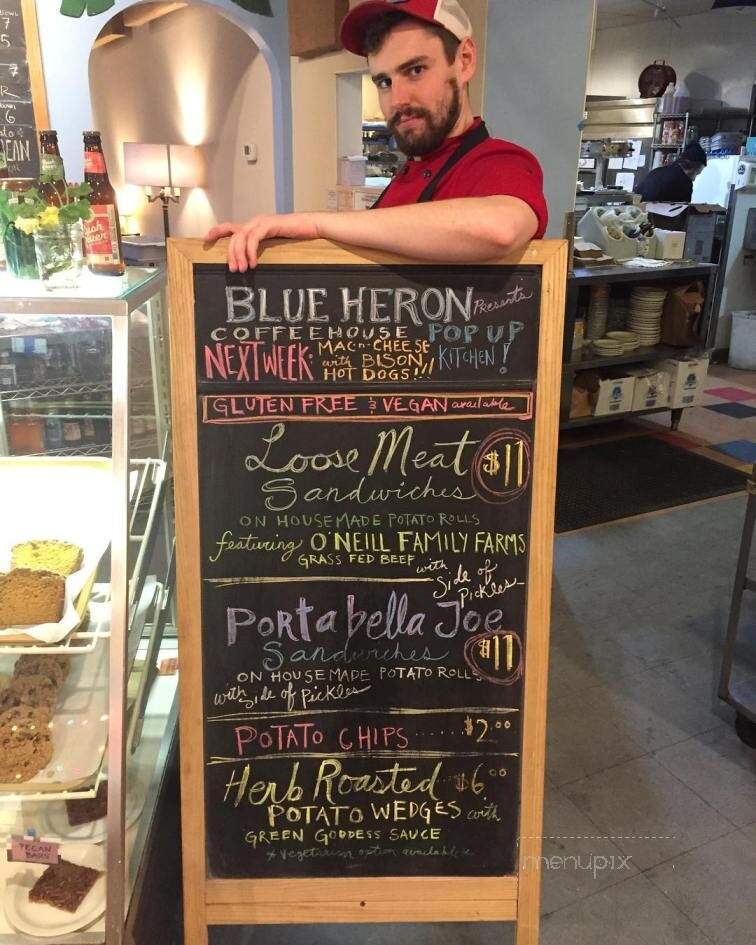 BLUE HERON Presents
COFFEEHOUSE POP UP
NEXT WEEK: MAC n' CHEESE KITCHEN!
with BISON
HOT DOGS!!!
GLUTEN FREE & VEGAN available
Loose Meat $11
Sandwiches
ON HOUSEMADE POTATO ROLLS
featuring O'NEILL FAMILY FARMS
GRASS FED BEEF with Side of
Pickles
Portabella Joe
Sandwiches $11
ON HOUSEMADE POTATO ROLLS
with Side of Pickles
POTATO CHIPS ...... $2.00
Herb Roasted $6.00
POTATO WEDGES with
GREEN GODDESS SAUCE
* Vegetarian option available
PECAN
BARS
menupix
7
5
7
R
6
EAN